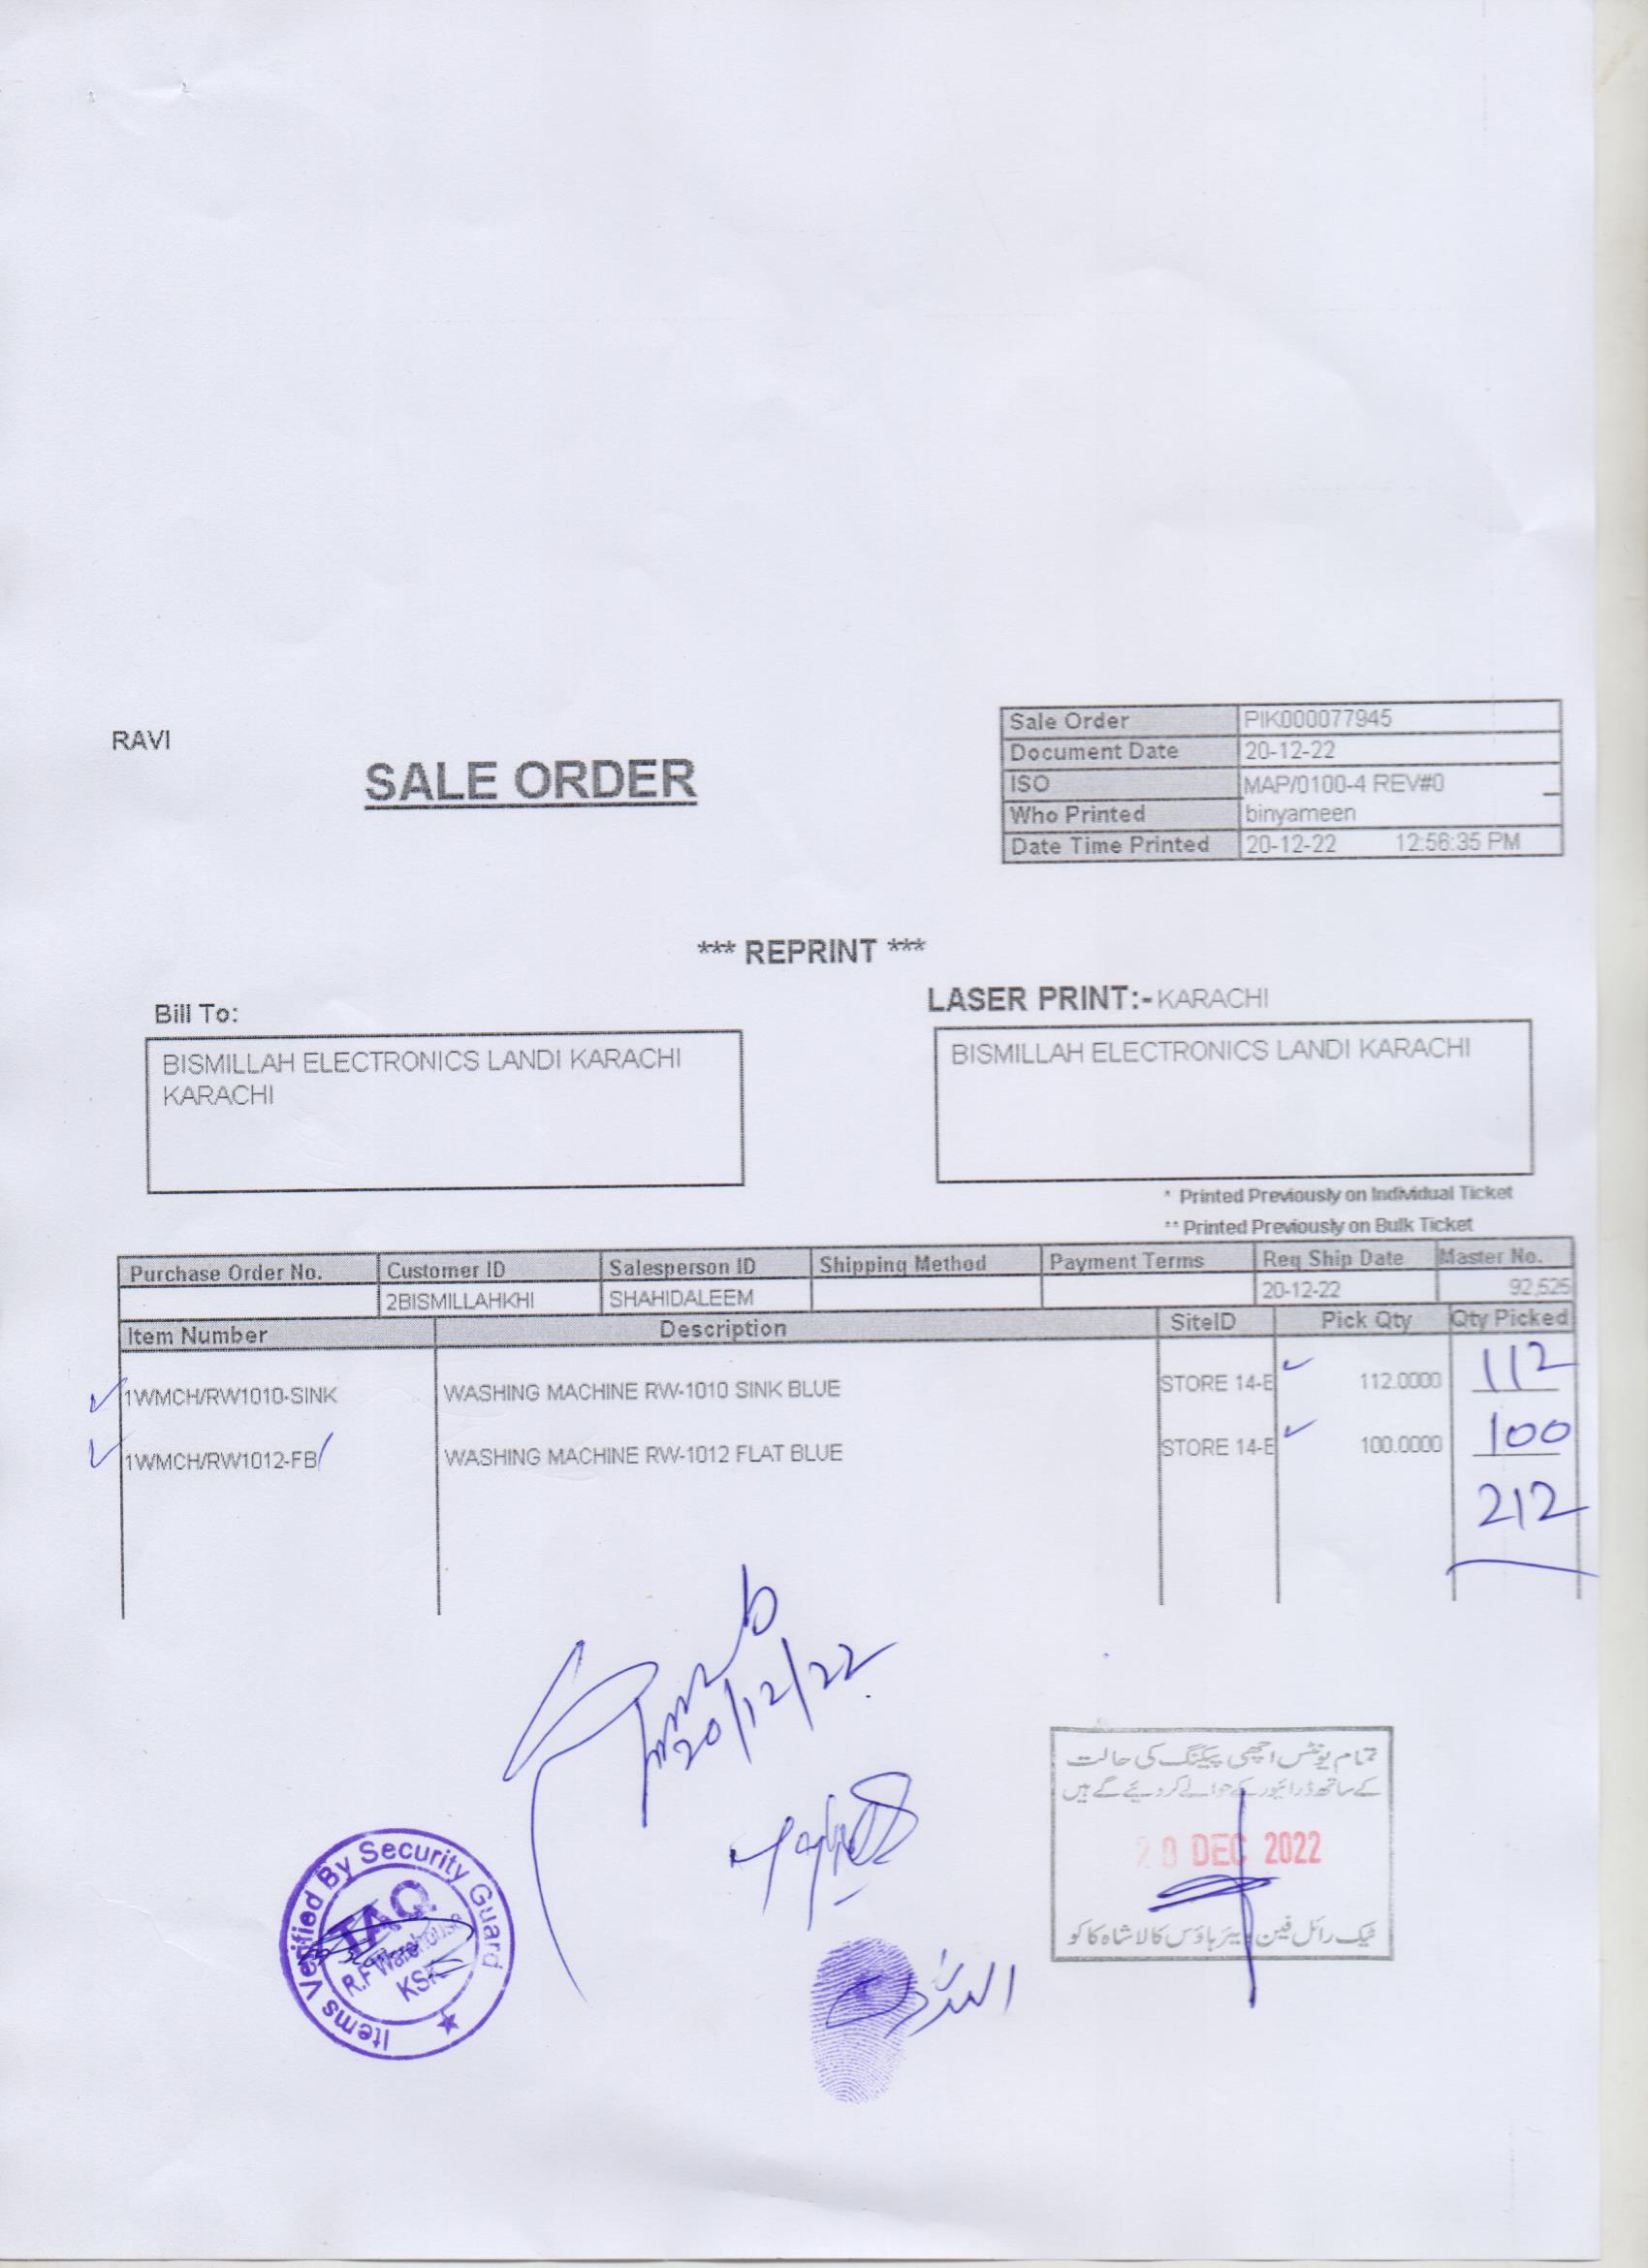 RAVI
SALE ORDER
Sale Order PIK000077945
Document Date 20-12-22
ISO MAP/0100-4 REV#0
Who Printed binyameen
Date Time Printed 20-12-22 12:56:35 PM
*** REPRINT ***
Bill To:
LASER PRINT:- KARACHI
BISMILLAH ELECTRONICS LANDI KARACHI
KARACHI
BISMILLAH ELECTRONICS LANDI KARACHI
* Printed Previously on Individual Ticket
** Printed Previously on Bulk Ticket
Purchase Order No. Customer ID Salesperson ID Shipping Method Payment Terms Req Ship Date Master No.
2BISMILLAHKHI SHAHIDALEEM 20-12-22 92,525
Item Number Description SiteID Pick Qty Qty Picked
1WMCH/RW1010-SINK WASHING MACHINE RW-1010 SINK BLUE STORE 14-E 112.0000 112
1WMCH/RW1012-FB WASHING MACHINE RW-1012 FLAT BLUE STORE 14-E 100.0000 100
212
20/12/22
تمام یونٹس اچھی پیکنگ کی حالت
کے ساتھ ڈرائیور کے حوالے کر دیئے گئے ہیں
20 DEC 2022
ٹیک رائل فین ویئر ہاؤس کالا شاہ کاکو
Items Verified By Security Guard
TAQ
R.F Warehouse
KSK